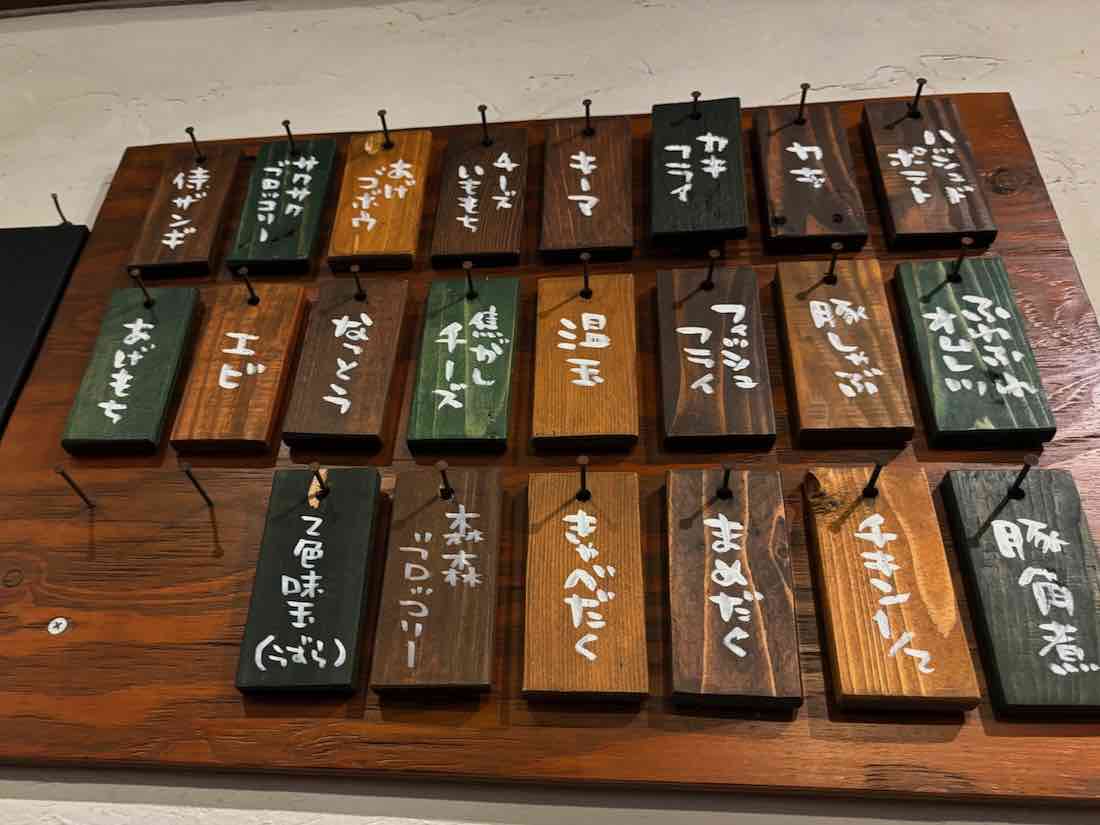 ハッシュド
ポテト
カキ
フライ
キーマ
チーズ
いももち
あげ
ゴボウ
サクサク
ブロッコリー
侍ザンギ
ふわふわ
オムレツ
豚しゃぶ
フィッシュ
フライ
温玉
焦がし
チーズ
なっとう
エビ
あげもち
豚角煮
チキンカツ
まめだく
きゃべだく
森森
ブロッコリー
2色味玉
(うずら)